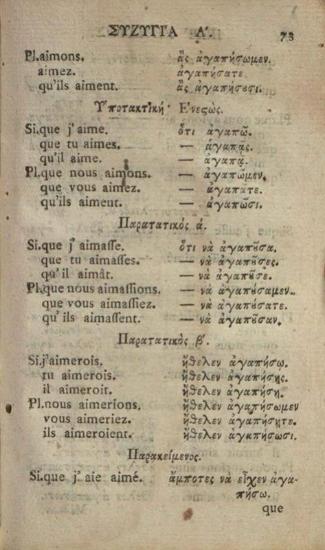 ΣΥΖΥΓΓΑ Α'. 73
Pl. aimons. ἂς ἀγαπήσωμεν.
aimez. ἀγαπήσατε.
qu'ils aiment. ἂς ἀγαπήσεσι.
Ὑποτακτικὴ Ενεςώς.
Si. que j'aime. ὅτι ἀγαπῶ.
que tu aimes. — ἀγαπᾷς.
qu'il aime. — ἀγαπᾷ.
Pl. que nous aimons. — ἀγαπῶμεν.
que vous aimez. — ἀγαπᾶτε.
qu'ils aiment. — ἀγαπῶσι.
Παρατατικὸς ά.
Si. que j'aimasse. ὅτι νὰ ἀγαπȣ͂σα.
que tu aimasses. — νὰ ἀγαπȣ͂σες.
qu'il aimât. — νὰ ἀγαπȣ͂σε.
Pl. que nous aimassions. — νὰ ἀγαπȣ́σαμεν.
que vous aimassiez. — νὰ ἀγαπȣ́σατε.
qu'ils aimassent. — νὰ ἀγαπȣ͂σαν.
Παρατατικὸς β'.
Si. j'aimerois. ἤθελεν ἀγαπήσω.
tu aimerois. ἤθελεν ἀγαπήσῃς.
il aimeroit. ἤθελεν ἀγαπήσῃ.
Pl. nous aimerions. ἤθελεν ἀγαπήσωμεν
vous aimeriez. ἤθελεν ἀγαπήσητε.
ils aimeroient. ἤθελεν ἀγαπήσωσι.
Παρακείμενος.
Si. que j'aie aimé. ἄμποτες νὰ εἶχεν ἀγα-
πήσω.
que